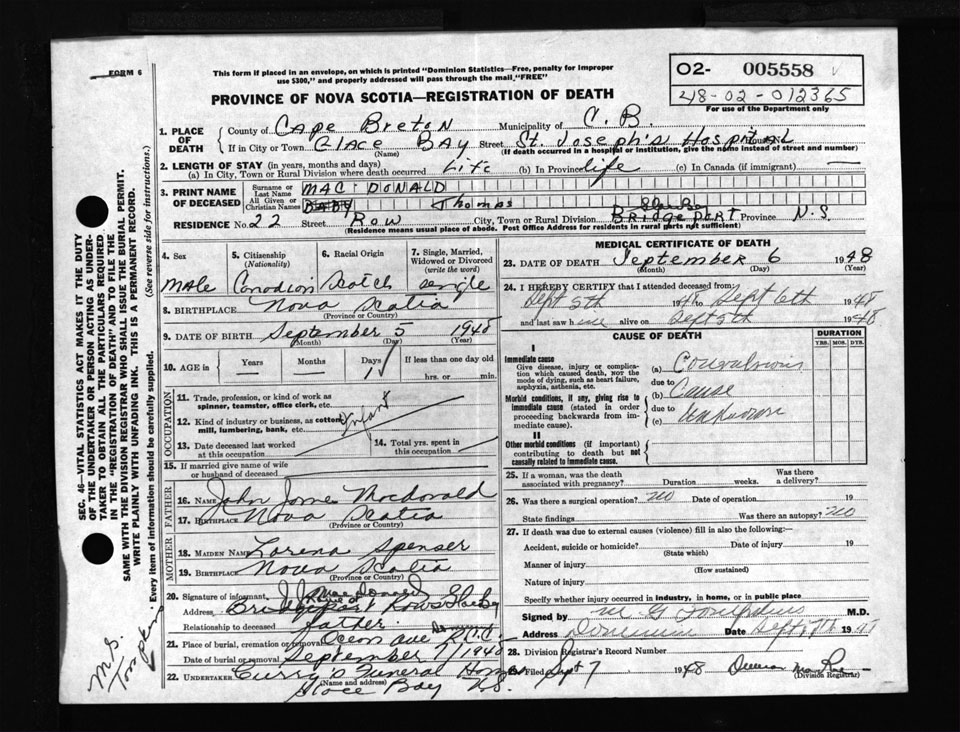 FORM 6
This form if placed in an envelope, on which is printed "Dominion Statistics—Free, penalty for improper
use $300," and properly addressed will pass through the mail "FREE"
PROVINCE OF NOVA SCOTIA—REGISTRATION OF DEATH
02- 005558
48-02-012365
For use of the Department only
1. PLACE OF DEATH
County of Cape Breton Municipality of C. B.
If in City or Town Glace Bay Street St. Joseph's Hospital
(Name) (If death occurred in a hospital or institution, give the name instead of street and number)
2. LENGTH OF STAY (in years, months and days)
(a) In City, Town or Rural Division where death occurred Life (b) In Province life (c) In Canada (if immigrant) —
3. PRINT NAME OF DECEASED
Surname or Last Name MAC DONALD
All Given or Christian Names BABY Thomas
RESIDENCE No. 22 Street Row City, Town or Rural Division BRIDGEPORT Province N.S.
(Residence means usual place of abode. Post Office Address for residents in rural parts not sufficient)
4. Sex
5. Citizenship (Nationality)
6. Racial Origin
7. Single, Married, Widowed or Divorced (write the word)
male Canadian Scotch single
8. BIRTHPLACE Nova Scotia
(Province or Country)
9. DATE OF BIRTH September 5 1948
(Month) (Day) (Year)
10. AGE in Years Months Days If less than one day old
— — 1 hrs. or min.
OCCUPATION
11. Trade, profession, or kind of work as spinner, teamster, office clerk, etc.
12. Kind of industry or business, as cotton mill, lumbering, bank, etc. Infant
13. Date deceased last worked at this occupation
14. Total yrs. spent in this occupation
15. If married give name of wife or husband of deceased
FATHER
16. NAME John James Macdonald
17. BIRTHPLACE Nova Scotia
(Province or Country)
MOTHER
18. MAIDEN NAME Lorena Spenser
19. BIRTHPLACE Nova Scotia
(Province or Country)
20. Signature of informant J J MacDonald
Address Bridgeport Rows Glace Bay
Relationship to deceased father
21. Place of burial, cremation or removal Ocean ave
Date of burial or removal September 7/1948
22. UNDERTAKER Curry's Funeral Home
(Name and address)
Glace Bay N.S.
MEDICAL CERTIFICATE OF DEATH
23. DATE OF DEATH September 6 1948
(Month) (Day) (Year)
24. I HEREBY CERTIFY that I attended deceased from
Sept 5th 1948 to Sept 6th 1948
and last saw him alive on Sept 5th 1948
CAUSE OF DEATH
DURATION
YRS. MOS. DYS.
I
Immediate cause
Give disease, injury or complication which caused death, NOT the mode of dying, such as heart failure, asphyxia, asthenia, etc.
(a) Convulsions
due to
Morbid conditions, if any, giving rise to immediate cause (stated in order proceeding backwards from immediate).
(b) Cause
due to
(c) unknown
II
Other morbid conditions (if important) contributing to death but not causally related to immediate cause.
25. If a woman, was the death associated with pregnancy? Duration weeks. Was there a delivery?
26. Was there a surgical operation? no Date of operation 19
State findings Was there an autopsy? no
27. If death was due to external causes (violence) fill in also the following:—
Accident, suicide or homicide? Date of injury 19
(State which)
Manner of injury
(How sustained)
Nature of injury
Specify whether injury occurred in industry, in home, or in public place
Signed by M G Tompkins M.D.
Address Dominion Date Sept 7th 19
28. Division Registrar's Record Number
Filed Sept 7 1948
(Division Registrar)
SEC. 46—VITAL STATISTICS ACT MAKES IT THE DUTY
OF THE UNDERTAKER OR PERSON ACTING AS UNDER-
TAKER TO OBTAIN ALL THE PARTICULARS REQUIRED
IN THE "REGISTRATION OF DEATH" AND TO FILE THE
SAME WITH THE DIVISION REGISTRAR WHO SHALL ISSUE THE BURIAL PERMIT.
WRITE PLAINLY WITH UNFADING INK. THIS IS A PERMANENT RECORD.
Every item of information should be carefully supplied. (See reverse side for instructions.)
Tompkins